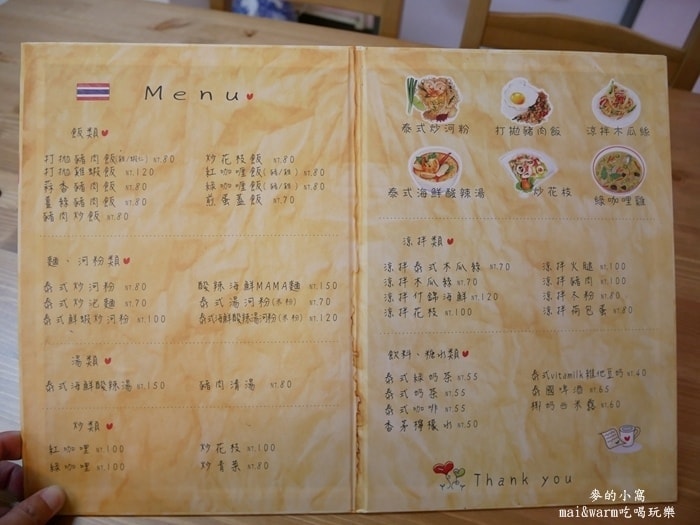 Menu
飯類
打拋豬肉飯(雞/蝦仁) NT.80
打拋雞蝦飯 NT.120
蒜香豬肉飯 NT.80
薑絲豬肉飯 NT.80
豬肉炒飯 NT.80
炒花枝飯 NT.80
紅咖哩飯(豬/雞) NT.80
綠咖哩飯(豬/雞) NT.80
煎蛋蓋飯 NT.70
麵、河粉類
泰式炒河粉 NT.80
泰式炒泡麵 NT.70
泰式鮮蝦炒河粉 NT.100
酸辣海鮮MAMA麵 NT.150
泰式湯河粉(米粉) NT.70
泰式海鮮酸辣湯河粉(米粉) NT.120
湯類
泰式海鮮酸辣湯 NT.150
豬肉清湯 NT.80
炒類
紅咖哩 NT.100
綠咖哩 NT.100
炒花枝 NT.100
炒青菜 NT.80
泰式炒河粉
打拋豬肉飯
涼拌木瓜絲
泰式海鮮酸辣湯
炒花枝
綠咖哩雞
涼拌類
涼拌泰式木瓜絲 NT.70
涼拌木瓜絲 NT.70
涼拌什錦海鮮 NT.120
涼拌花枝 NT.100
涼拌火腿 NT.100
涼拌豬肉 NT.100
涼拌米粉 NT.80
涼拌荷包蛋 NT.80
飲料、糖水類
泰式綠奶茶 NT.55
泰式奶茶 NT.55
泰式咖啡 NT.55
香茅檸檬水 NT.50
泰式vitamilk維他豆奶 NT.40
泰國啤酒 NT.65
椰奶西米露 NT.60
Thank you
麥的小窩
mai&warm吃喝玩樂